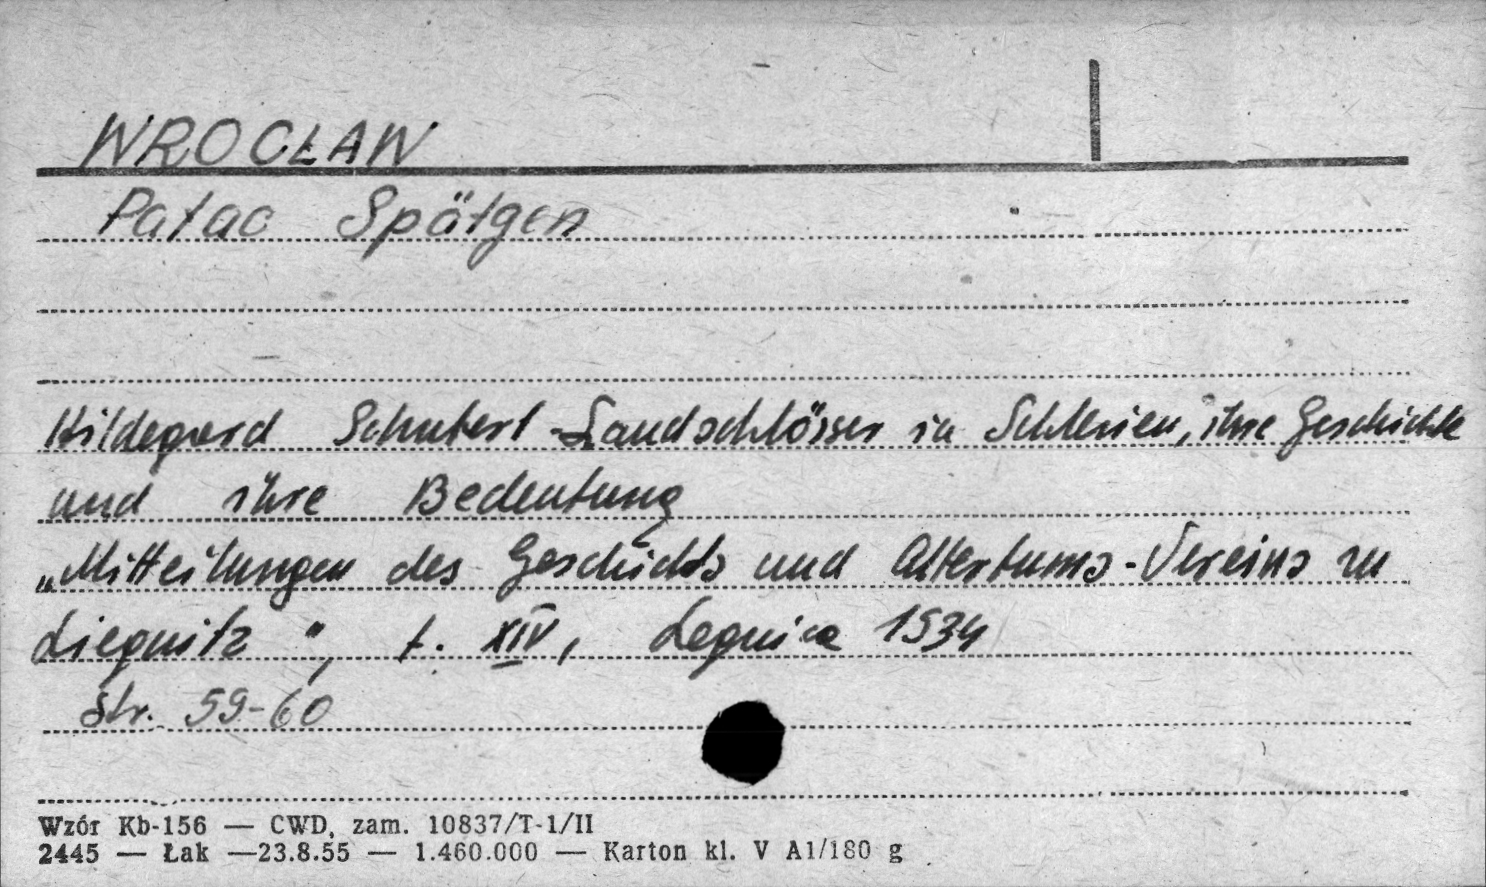 WROCŁAW
Pałac Spätgen
Hildegard Schubert - Landschlösser in Schlesien, ihre Geschichte
und ihre Bedeutung
"Mitteilungen des Geschichts und Altertums-Vereins zu
Liegnitz", t. XIV, Legnica 1934
Str. 59-60
Wzór Kb-156 — CWD, zam. 10837/T-1/II
2445 — Łak —23.8.55 — 1.460.000 — Karton kl. V A1/180 g